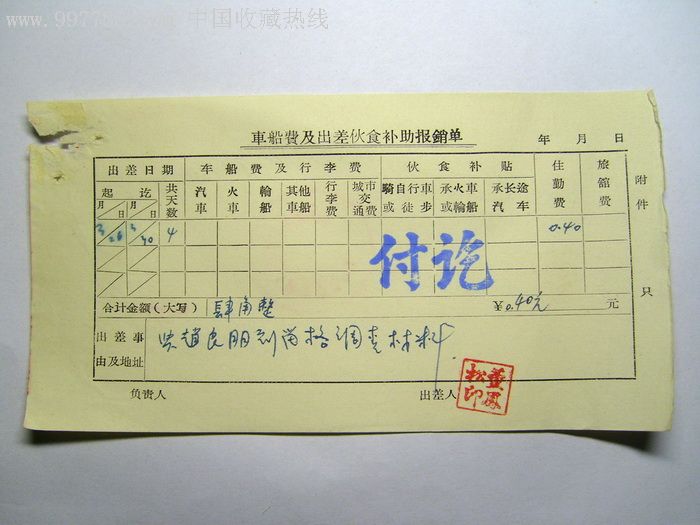 中国收藏热线
車船費及出差伙食补助报銷单
年 月 日
出差日期 车船費及行李費 伙食补貼 住勤費 旅舘費
起 迄 共天数 汽車 火車 輪船 其他車船 行李費 城市交通費 騎自行車或徒步 承火車或輪船 承长途汽车
月 日 月 日
3 26 3 30 4 0.40
付讫
合计金額(大写) 肆角整 ¥0.40元 元
出差事由及地址 趙良朋到 格調查材料
附件 只
负責人 出差人
董鳳松印